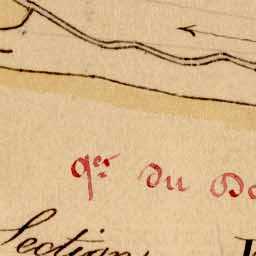 qer du
Section